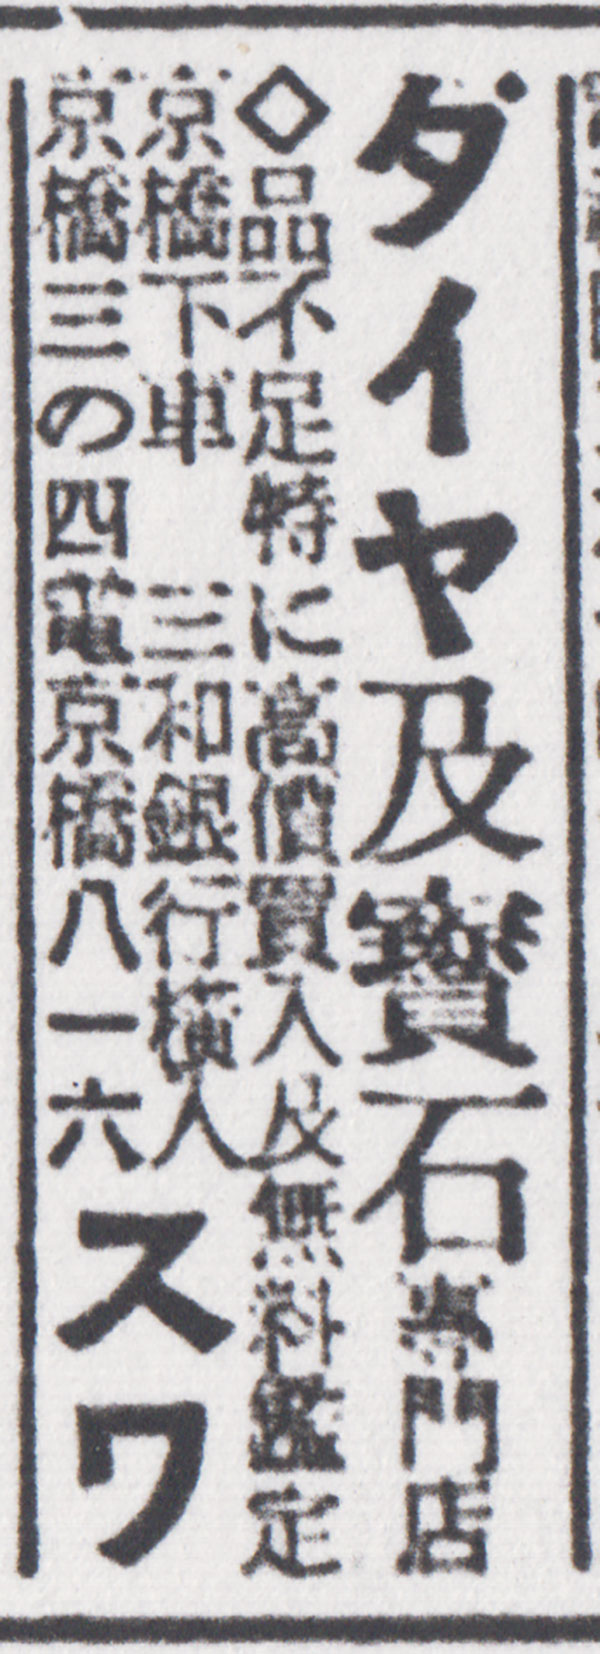 ダイヤ及寶石專門店
◇品不足特に高價買入及無料鑑定
京橋下車 三和銀行橫入
京橋三の四電京橋八一六
スワ